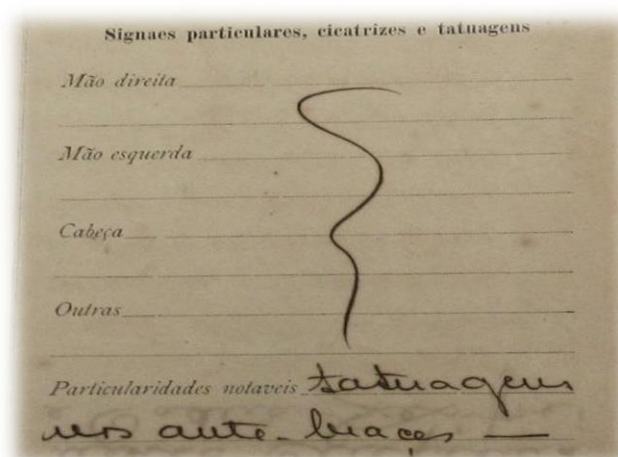 Signaes particulares, cicatrizes e tatuagens
Mão direita
Mão esquerda
Cabeça
Outras
Particularidades notaveis tatuagens
nos ante-braços —